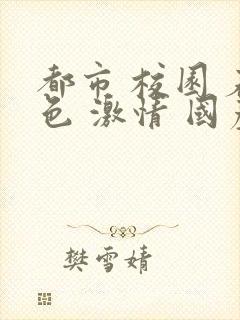 都市 校园 
色 激情 國
樊雪婧